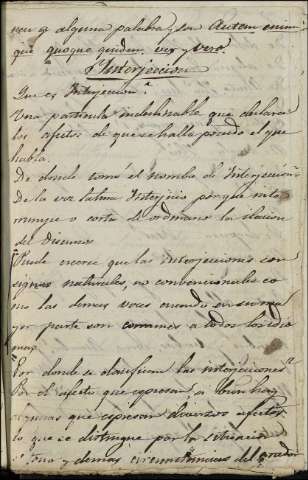 nen de alguna palabra, son Autem enim
que quoque quidem, vix y vero
Interjeccion
Que es Interjeccion?
Una particula indeclinable que declara
los afectos de que se halla poseido el que
habla.
De donde tomó el nombre de Interjeccion
De la voz latina Interjicio porque inte
rrumpe o corta de ordinario la
del Discurso
Puede creerse que las interjecciones son
signos naturales, no convencionales co
mo las demas voces cuando en su ma
yor parte son comunes a todos los idio
mas
Por donde se clasifican las interjecciones?
Por el afecto que expresan a bien hay
algunas que expresan diversos afectos
lo que se distingue por la situacion
tono y demas circunstancias del orador